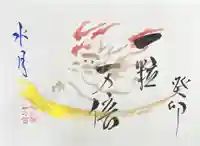 癸卯
一粒
万倍
水月